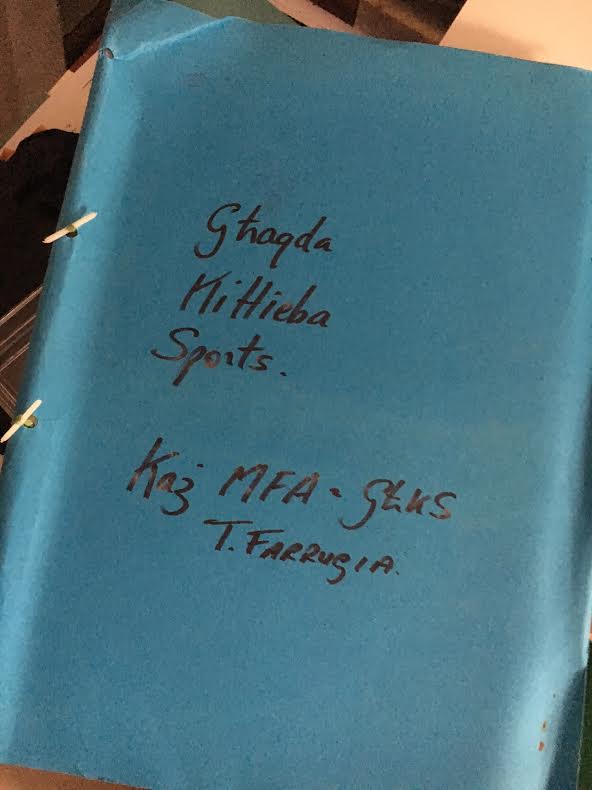 Għaqda
Kittieba
Sports.
Każ MFA - GĦKS
T. FARRUGIA.